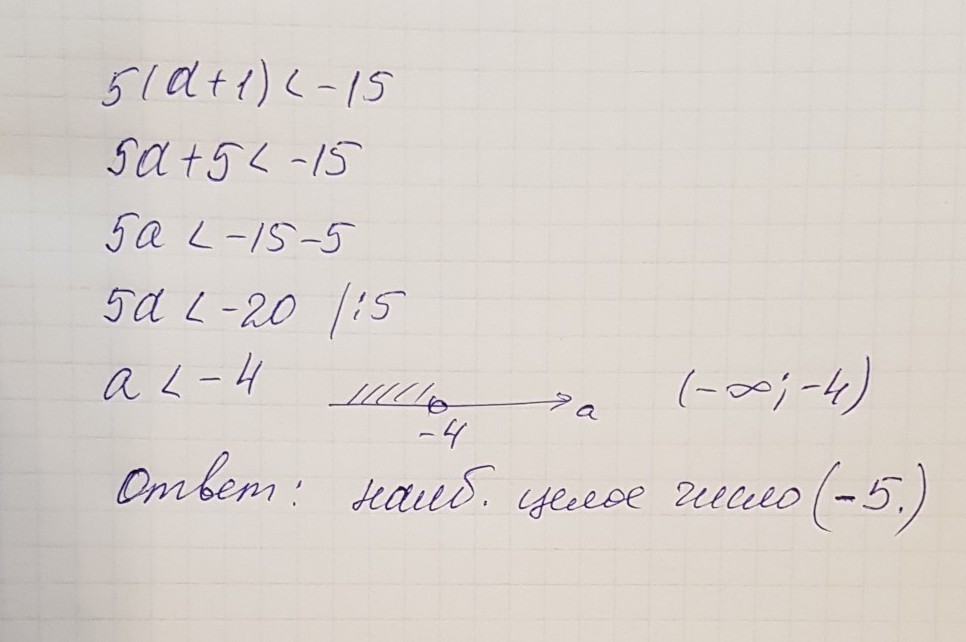 5(a+1) < -15
5a+5 < -15
5a < -15-5
5a < -20 /:5
a < -4 -4 a (-∞; -4)
Ответ: наиб. целое число (-5.)